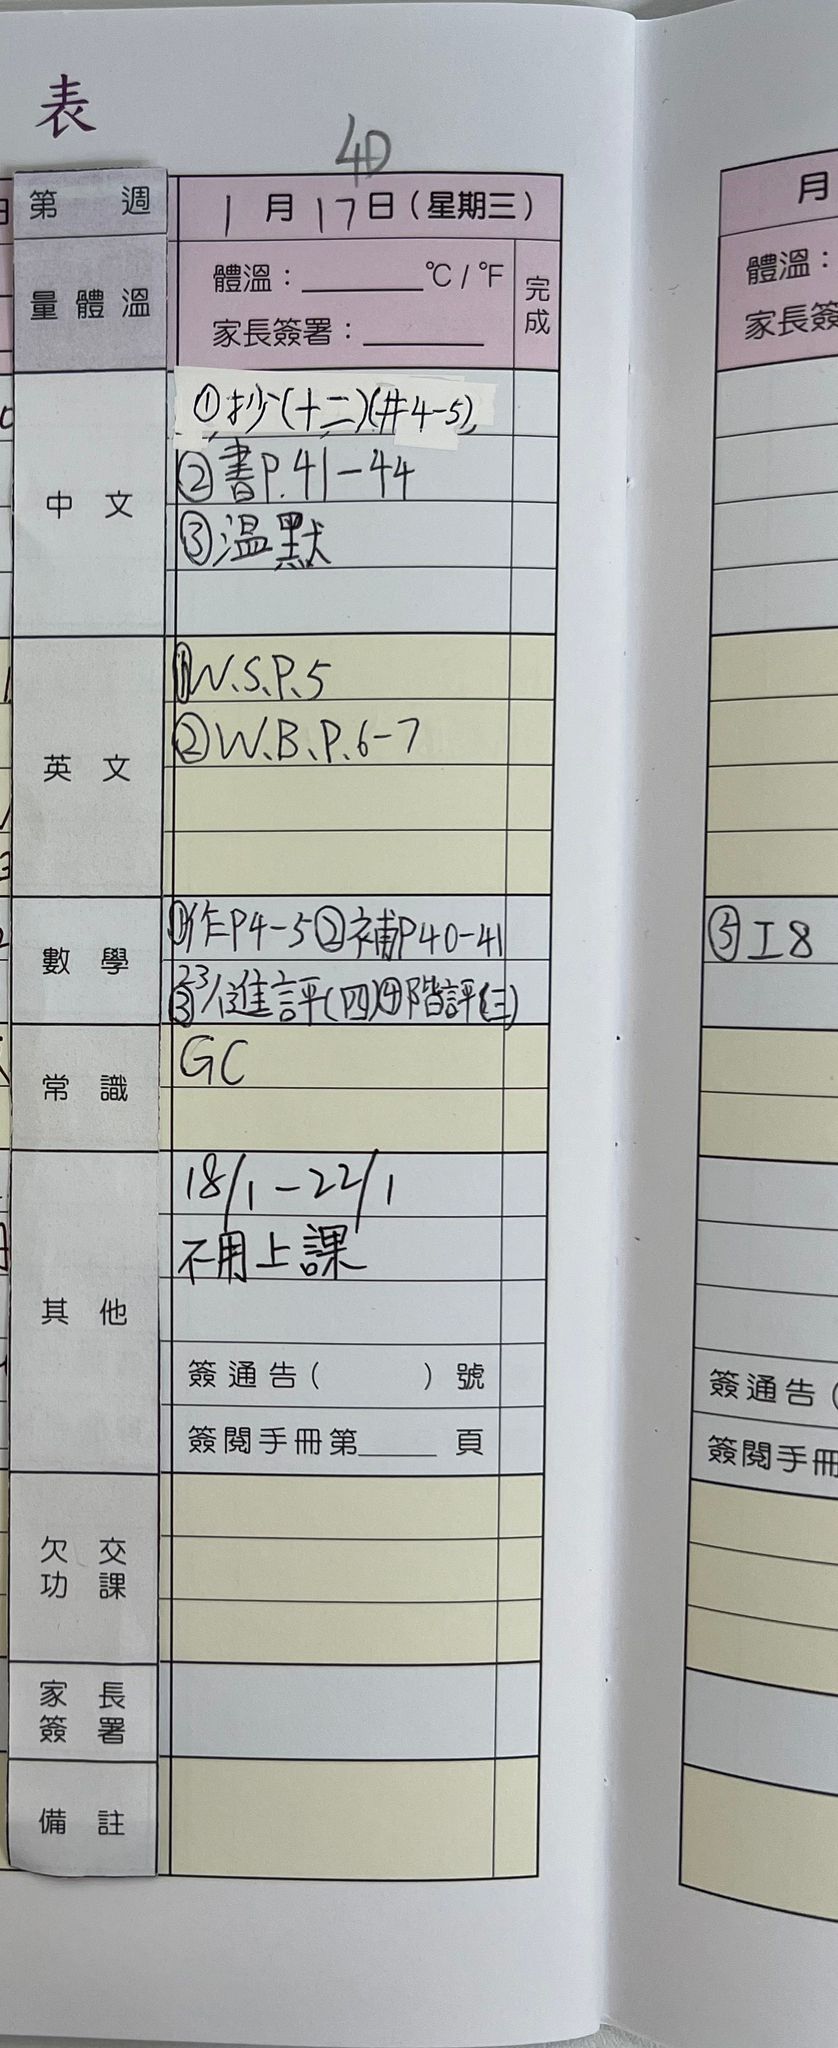 表
4D
第 週
1月17日(星期三)
量體溫
體溫：______°C/°F
家長簽署：______
完成
中文
①抄(十二)(井4-5)
②書P.41-44
③溫默
英文
①W.S.P.5
②W.B.P.6-7
數學
①作P4-5②補P40-41
③進評(四)④階評(三)
常識
GC
其他
18/1-22/1
不用上課
簽通告( )號
簽閱手冊第____頁
欠交功課
家長簽署
備註
月
體溫：
家長簽
⑤工8
簽通告(
簽閱手冊